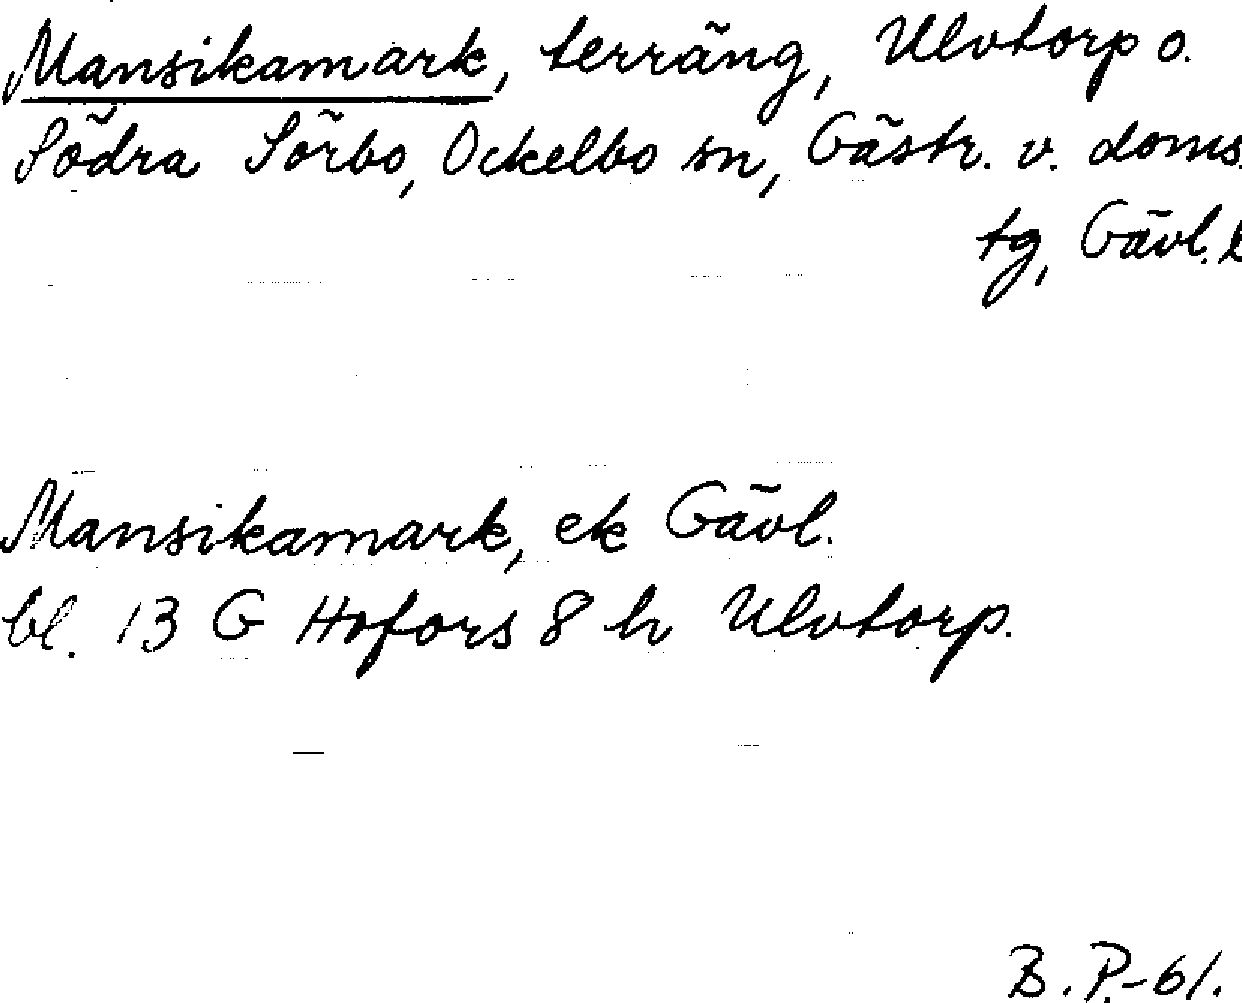 Mansikamark, terräng, Ulvtorp o.
Södra Sörbo, Ockelbo sn, Gästr. v. doms.
tg, Gävl. l
Mansikamark, ek Gävl.
bl. 13 G Hofors 8 h Ulvtorp.
B. P.-61.